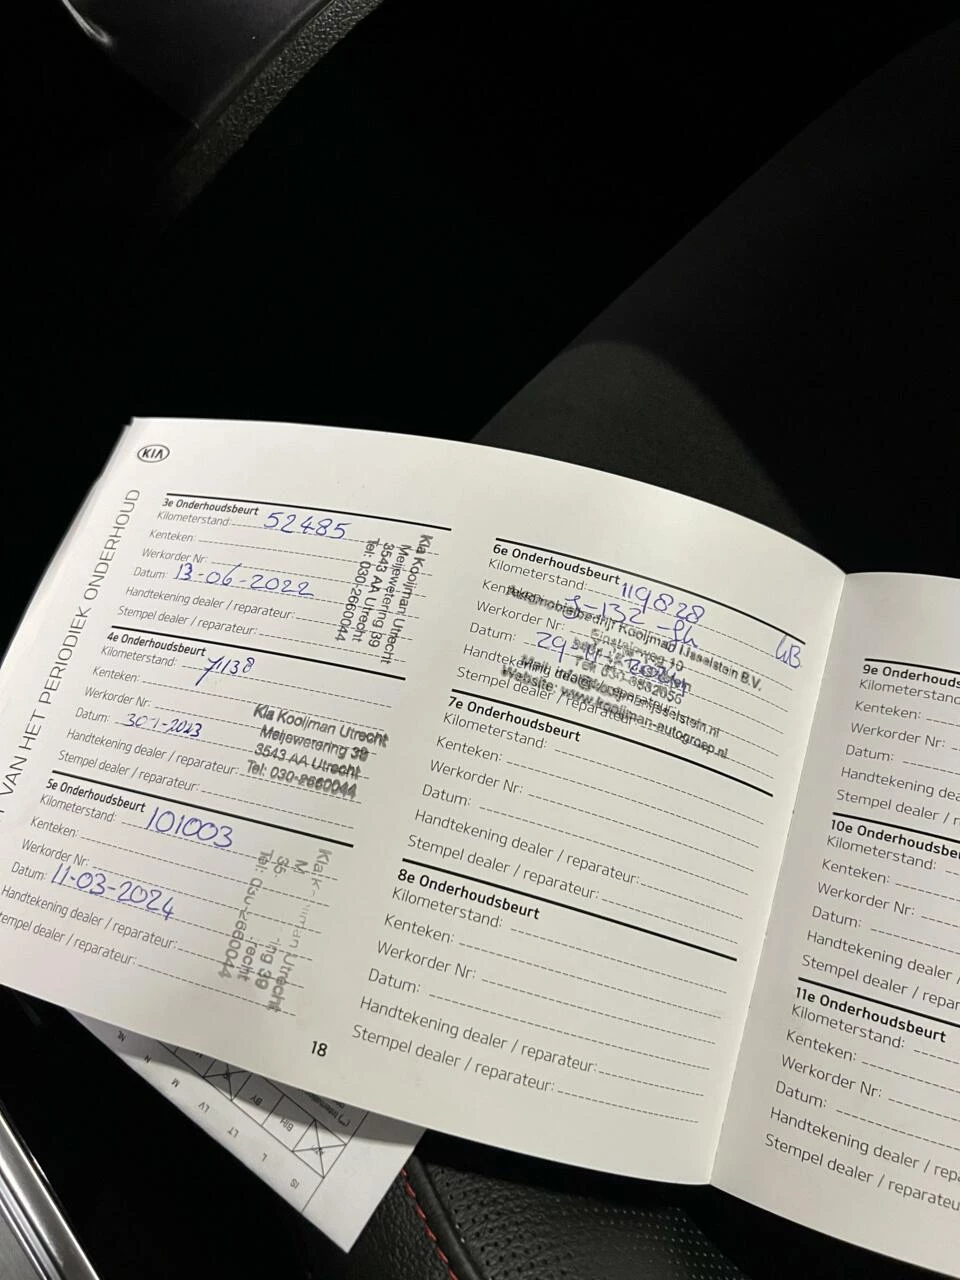 KIA
VAN HET PERIODIEK ONDERHOUD
3e Onderhoudsbeurt
Kilometerstand: 52485
Kenteken:
Werkorder Nr:
Datum: 13-06-2022
Handtekening dealer / reparateur:
Stempel dealer / reparateur:
Kia Kooijman Utrecht
Meijewetering 39
3543 AA Utrecht
Tel: 030-2660044
4e Onderhoudsbeurt
Kilometerstand: 71138
Kenteken:
Werkorder Nr:
Datum: 30-1-2023
Handtekening dealer / reparateur:
Stempel dealer / reparateur:
Kia Kooijman Utrecht
Meijewetering 39
3543 AA Utrecht
Tel: 030-2660044
5e Onderhoudsbeurt
Kilometerstand: 101003
Kenteken:
Werkorder Nr:
Datum: 11-03-2024
Handtekening dealer / reparateur:
Stempel dealer / reparateur:
man Utrecht
ing 39
recht
Tel: 030-2660044
18
6e Onderhoudsbeurt
Kilometerstand: 119828
Kenteken:
Werkorder Nr:
Datum: 29
Handtekening dealer / reparateur:
Stempel dealer / reparateur:
Automobielbedrijf Kooijman IJsselstein B.V.
Einsteinweg 10
Website: www.kooijman-autogroep.nl
7e Onderhoudsbeurt
Kilometerstand:
Kenteken:
Werkorder Nr:
Datum:
Handtekening dealer / reparateur:
Stempel dealer / reparateur:
8e Onderhoudsbeurt
Kilometerstand:
Kenteken:
Werkorder Nr:
Datum:
Handtekening dealer / reparateur:
Stempel dealer / reparateur:
9e Onderhouds
Kilometerstand
Kenteken:
Werkorder Nr:
Datum:
Handtekening dea
Stempel dealer / r
10e Onderhoudsbe
Kilometerstand:
Kenteken:
Werkorder Nr:
Datum:
Handtekening dealer /
Stempel dealer / repar
11e Onderhoudsbeurt
Kilometerstand:
Kenteken:
Werkorder Nr:
Datum:
Handtekening dealer / rep
Stempel dealer / reparateu
N
M
LV
LT
L
IS
BY
BIH